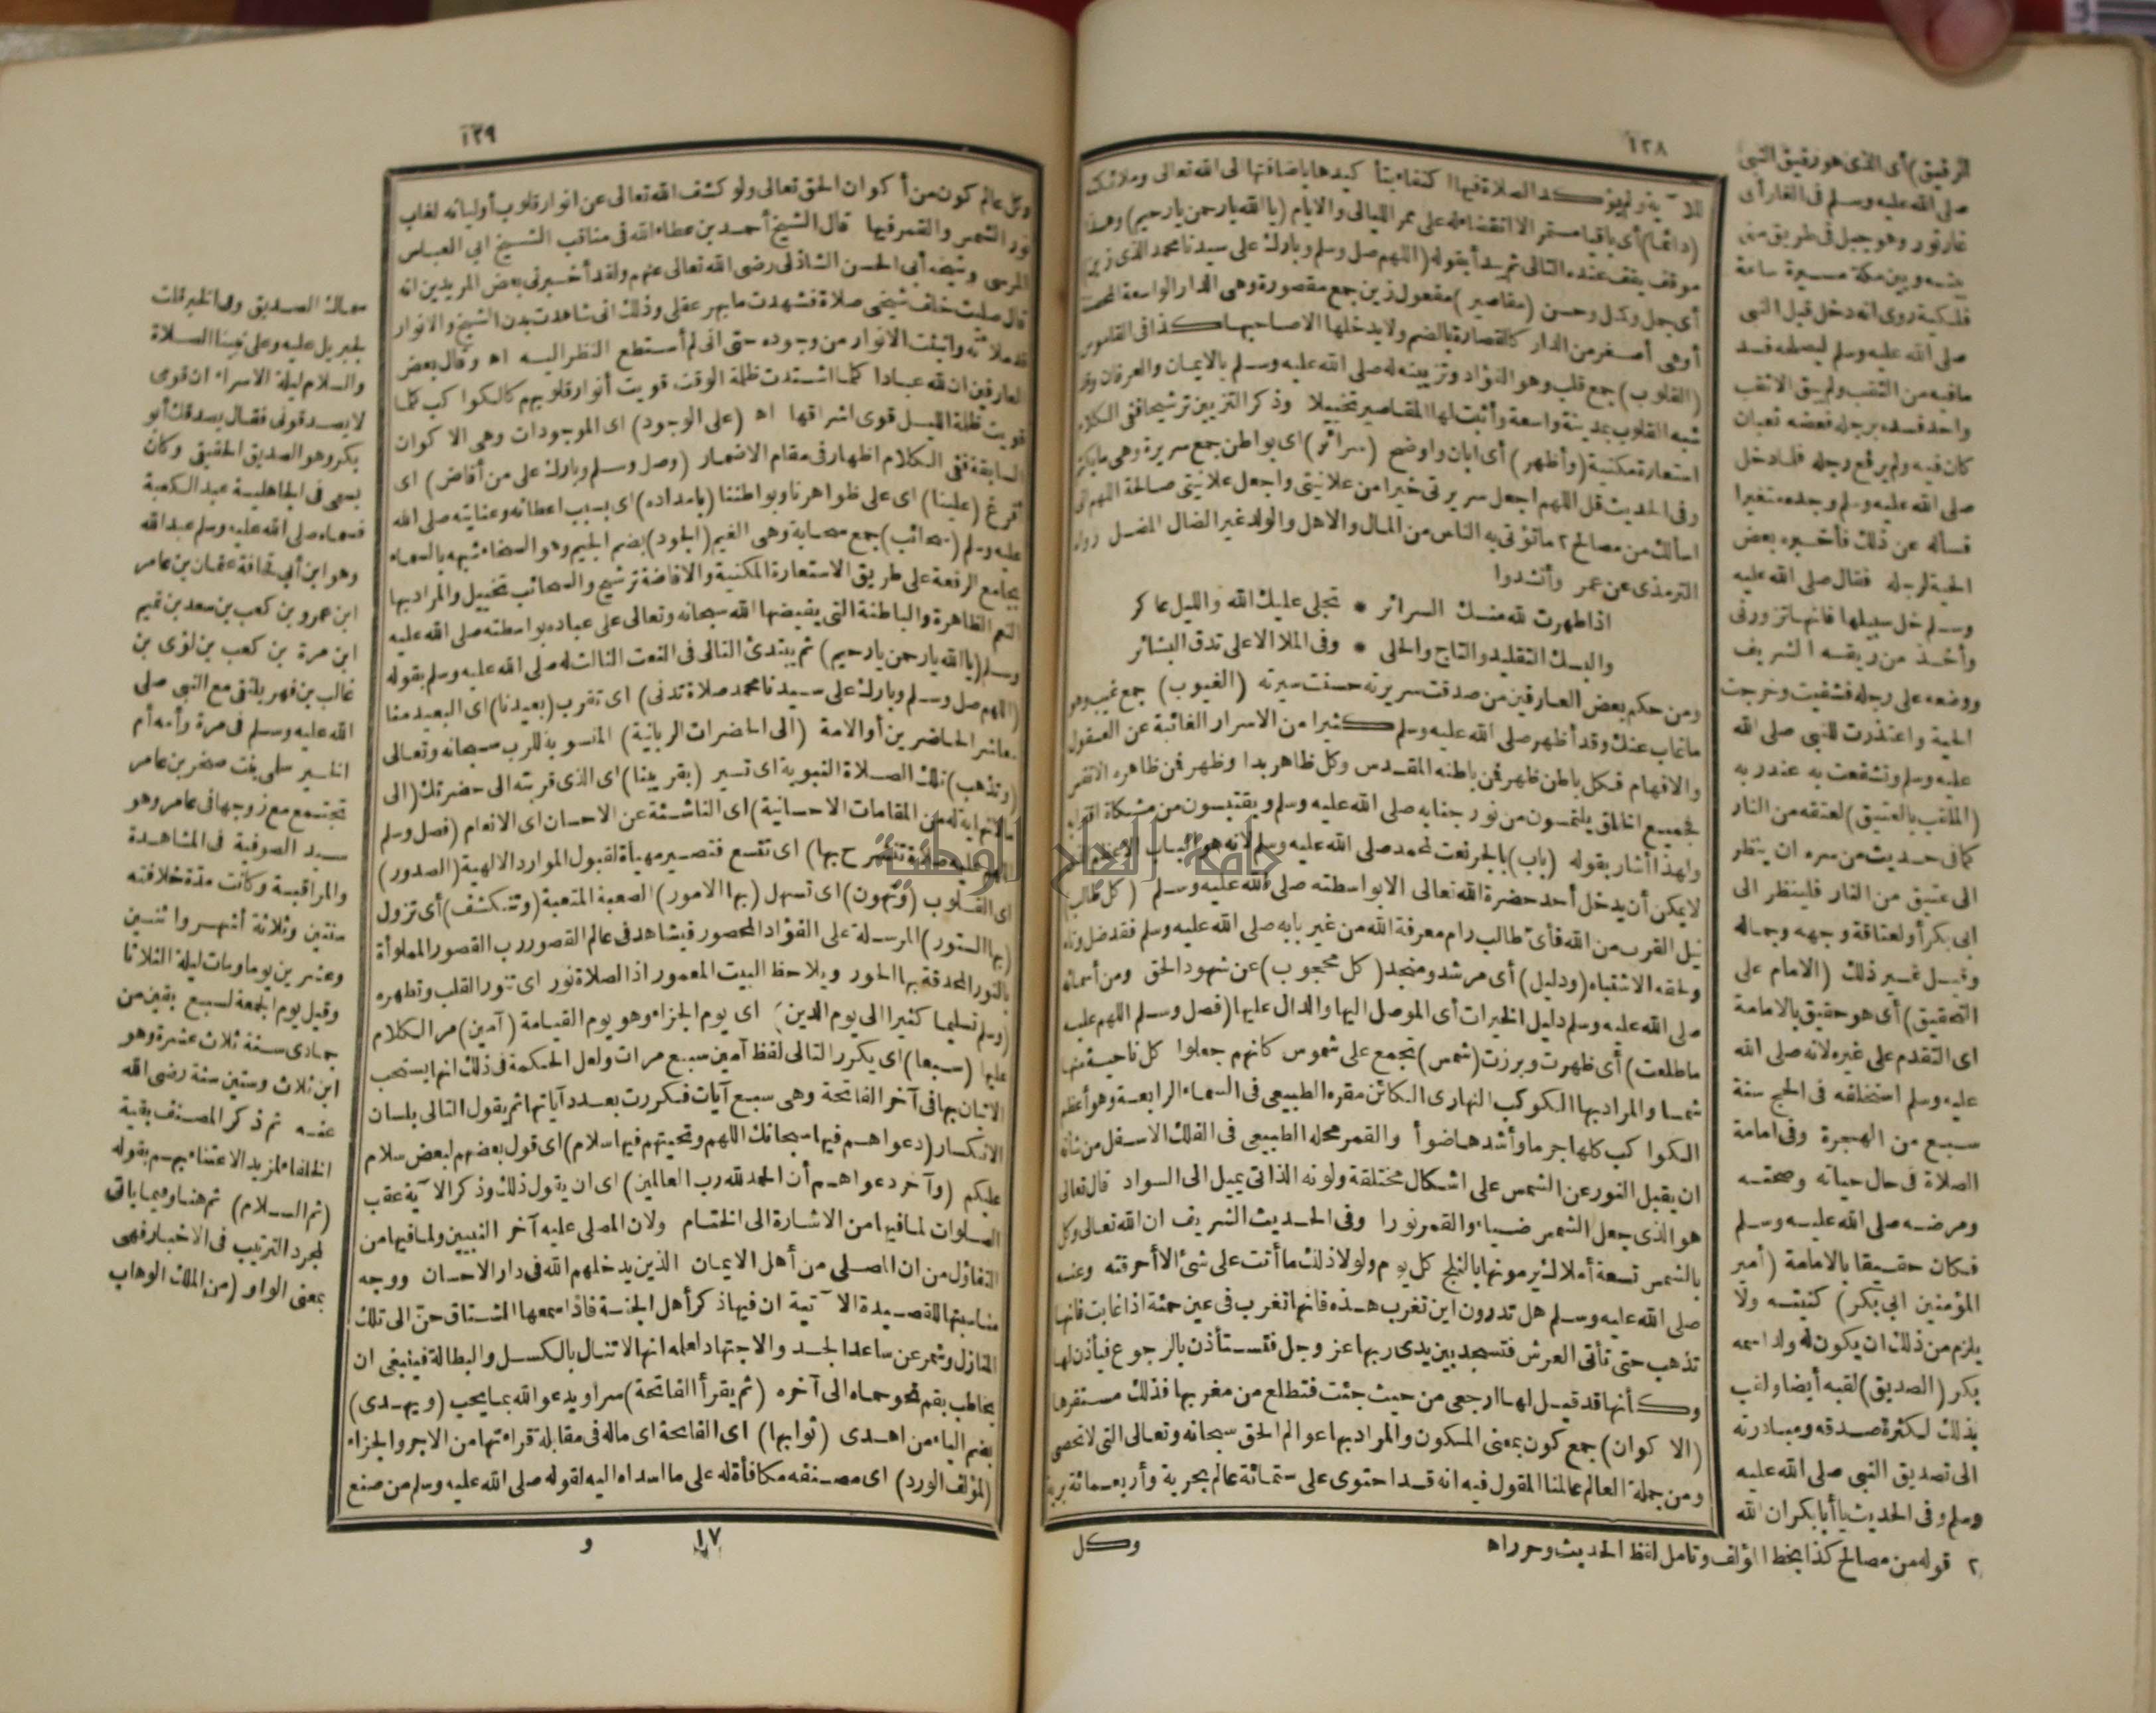 ١٢٨
للآية ولم يؤكد الصلاة فيها اكتفاء بتأكيدها باضافتها الى الله تعالى وملائكته
(دائما) أى باقيا مستمر الا انقضاء له على ممر الليالى والايام (يا الله يا رحمن يا رحيم) وهذا
موقف يقف عنده التالى ثم يبدأ بقوله (اللهم صل وسلم وبارك على سيدنا محمد الذى زين)
أى جمل وكمل وحسن (مقاصير) مفعول زين جمع مقصورة وهى الدار الواسعة المحصنة
أو هى أصغر من الدار كالقصارة بالضم ولا يدخلها الا صاحبها كذا فى القاموس
(القلوب) جمع قلب وهو الفؤاد وتزيينه له صلى الله عليه وسلم بالايمان والعرفان وقد
شبه القلوب بمدينة واسعة وأثبت لها المقاصير تخييلا وذكر التزيين ترشيحا ففى الكلام
استعارة مكنية (وأظهر) أى ابان واوضح (سرائر) اى بواطن جمع سريرة وهى ما يكتم
وفى الحديث قل اللهم اجعل سريرتى خيرا من علانيتى واجعل علانيتى صالحة اللهم انى
اسألك من مصالح ٢ ما تؤتى به الناس من المال والاهل والولد غير الضال المضل رواه
الترمذى عن عمر وأنشدوا
اذا طهرت لله منك السرائر * تجلى عليك الله والليل عاكر
والبسك التقليد والتاج والحلى * وفى الملا الاعلى تدق البشائر
ومن حكم بعض العارفين من صدقت سريرته حسنت سيرته (الغيوب) جمع غيب وهو
ما غاب عنك وقد أظهر صلى الله عليه وسلم كثيرا من الاسرار الغائبة عن العقول
والافهام فكل باطن ظهر فمن باطنه المقدس وكل ظاهر بدا وظهر فمن ظاهره الانفس
فجميع الخلق يلتمسون من نور جنابه صلى الله عليه وسلم ويقتبسون من مشكاة
ولهذا أشار بقوله (باب) بالجر نعت لمحمد صلى الله عليه وسلم لانه هو الباب الاعظم
لا يمكن أن يدخل أحد حضرة الله تعالى الا بواسطته صلى الله عليه وسلم (كل طالب)
نيل القرب من الله فأىّ طالب رام معرفة الله من غير بابه صلى الله عليه وسلم فقد ضل وتاه
ولحقه الاشتباه (ودليل) أى مرشد ومنجد (كل محجوب) عن شهود الحق ومن أسمائه
صلى الله عليه وسلم دليل الخيرات أى الموصل اليها والدال عليها (فصل وسلم اللهم عليه
ما طلعت) أى ظهرت وبرزت (شمس) تجمع على شموس كانهم جعلوا كل ناحية منها
شمسا والمراد بها الكوكب النهارى الكائن مقره الطبيعى فى السماء الرابعة وهو أعظم
الكواكب كلها جرما وأشدها ضوأ والقمر محله الطبيعى فى الفلك الاسفل من شأنه
ان يقبل النور عن الشمس على اشكال مختلفة ولونه الذاتى يميل الى السواد قال تعالى
هو الذى جعل الشمس ضياء والقمر نورا وفى الحديث الشريف ان الله تعالى وكل
بالشمس تسعة أملاك يرمونها بالثلج كل يوم ولولا ذلك ما أتت على شئ الا أحرقته وعنه
صلى الله عليه وسلم هل تدرون اين تغرب هذه فانها تغرب فى عين حمئة اذا غابت فانها
تذهب حتى تأتى العرش فتسجد بين يدى ربها عز وجل فتستأذن بالرجوع فيأذن لها
وكأنها قد قيل لها ارجعى من حيث جئت فتطلع من مغربها فذلك مستقرها
(الاكوان) جمع كون بمعنى المسكون والمراد بها عوالم الحق سبحانه وتعالى التى لا تحصى
ومن جملة العالم عالمنا المقول فيه انه قد احتوى على ستمائة عالم بحرية وأربعمائة برية
وكل
الرفيق) أى الذى هو رفيق النبى
صلى الله عليه وسلم فى الغار أى
غار ثور وهو جبل فى طريق منى
بينه وبين مكة مسيرة ساعة
فلكية روى انه دخل قبل النبى
صلى الله عليه وسلم ليصلحه فسد
ما فيه من الثقب ولم يبق الا ثقب
واحد فسده برجله فعضه ثعبان
كان فيه ولم يرفع رجله فلما دخل
صلى الله عليه وسلم وجده متغيرا
فسأله عن ذلك فأخبره بعض
الحية لرجله فقال صلى الله عليه
وسلم خل سبيلها فانها تزورنى
وأخذ من ريقه الشريف
ووضعه على رجله فشفيت وخرجت
الحية واعتذرت للنبى صلى الله
عليه وسلم وتشفعت به عند ربه
(الملقب بالعتيق) لعتقه من النار
كما فى حديث من سره ان ينظر
الى عتيق من النار فلينظر الى
ابى بكر أو لعتاقة وجهه وجماله
وقيل غير ذلك (الامام على
التحقيق) أى هو حقيق بالامامة
اى التقدم على غيره لانه صلى الله
عليه وسلم استخلفه فى الحج سنة
سبع من الهجرة وفى امامة
الصلاة فى حال حياته وصحته
ومرضه صلى الله عليه وسلم
فكان حقيقا بالامامة (أمير
المؤمنين ابى بكر) كنيته ولا
يلزم من ذلك ان يكون له ولد اسمه
بكر (الصديق) لقبه أيضا ولقب
بذلك لكثرة صدقه ومبادرته
الى تصديق النبى صلى الله عليه
وسلم وفى الحديث يا أبا بكر ان الله
٢ قوله من مصالح كذا بخط المؤلف وتامل لفظ الحديث وحرر اه
١٢٩
وكل عالم كون من أكوان الحق تعالى ولو كشف الله تعالى عن انوار قلوب أوليائه لغاب
نور الشمس والقمر فيها قال الشيخ أحمد بن عطاء الله فى مناقب الشيخ ابى العباس
المرسى وشيخه أبى الحسن الشاذلى رضى الله تعالى عنهم ولقد أخبرنى بعض المريدين انه
قال صليت خلف شيخى صلاة فشهدت ما يبهر عقلى وذلك انى شاهدت بدن الشيخ والانوار
قد ملأته وانبثت الانوار من وجوده حتى انى لم أستطع النظر اليه اه وقال بعض
العارفين ان لله عبادا كلما اشتدت ظلمة الوقت قويت أنوار قلوبهم كالكواكب كلما
قويت ظلمة الليل قوى اشراقها اه (على الوجود) اى الموجودات وهى الاكوان
السابقة ففى الكلام اظهار فى مقام الاضمار (وصل وسلم وبارك على من أفاض) اى
أفرغ (علينا) اى على ظواهرنا وبواطننا (بامداده) اى بسبب اعطائه وعنايته صلى الله
عليه وسلم (سحائب) جمع سحابة وهى الغيم (الجود) بضم الجيم وهو السخاء شبهه بالسماء
بجامع الرفعة على طريق الاستعارة المكنية والافاضة ترشيح والسحائب تخييل والمراد بها
النعم الظاهرة والباطنة التى يفيضها الله سبحانه وتعالى على عباده بواسطته صلى الله عليه
وسلم (يا الله يا رحمن يا رحيم) ثم يبتدئ التالى فى النعت الثالث له صلى الله عليه وسلم بقوله
(اللهم صل وسلم وبارك على سيدنا محمد صلاة تدنى) اى تقرب (بعيدنا) اى البعيد منا
معاشر الحاضرين أو الامة (الى الحضرات الربانية) المنسوبة للرب سبحانه وتعالى
(وتذهب) تلك الصلاة النبوية اى تسير (بقريبنا) اى الذى قربته الى حضرتك (الى
ما لا نهاية له من المقامات الاحسانية) اى الناشئة عن الاحسان اى الانعام (فصل وسلم
اللهم عليه صلاة تنشرح بها) اى تتسع فتصير مهيأة لقبول الموارد الالهية (الصدور)
اى القلوب (وتهون) اى تسهل (بها الامور) الصعبة المتعبة (وتنكشف) أى تزول
(بها الستور) المرسلة على الفؤاد المحصور فيشاهد فى عالم القصور رب القصور المملوأة
بالنور المحدقة بها الحور ويلاحظ البيت المعمور اذ الصلاة نور اى تنور القلب وتطهره
(وسلم تسليما كثيرا الى يوم الدين) اى يوم الجزاء وهو يوم القيامة (آمين) مر الكلام
عليها (سبعا) اى يكرر التالى لفظ آمين سبع مرات ولعل الحكمة فى ذلك انها يستحب
الاتيان بها فى آخر الفاتحة وهى سبع آيات فكررت بعدد آياتها ثم يقول التالى بلسان
الانكسار (دعواهم فيها سبحانك اللهم وتحيتهم فيها سلام) اى قول بعضهم لبعض سلام
عليكم (وآخر دعواهم أن الحمد لله رب العالمين) اى ان يقول ذلك وذكر الآية عقب
الصلوات لما فيها من الاشارة الى الختام ولان المصلى عليه آخر النبيين ولما فيها من
التفاؤل من ان المصلى من أهل الايمان الذين يدخلهم الله فى دار الاحسان ووجه
مناسبتها للقصيدة الآتية ان فيها ذكر أهل الجنة فاذا سمعها المشتاق حنّ الى تلك
المنازل وشمر عن ساعد الجد والاجتهاد لعلمه انها لا تنال بالكسل والبطالة فينبغى ان
يخاطب بقم نحو حماه الى آخره (ثم يقرأ الفاتحة) سرا ويدعو الله بما يحب (ويهدى)
بضم الياء من اهدى (ثوابها) اى الفاتحة اى ماله فى مقابلة قراءتها من الاجر والجزاء
(لمؤلف الورد) اى مصنفه مكافأة له على ما اسداه اليه لقوله صلى الله عليه وسلم من صنع
١٧
و
سماك الصديق وفى الخبر قلت
لجبريل عليه وعلى نبينا الصلاة
والسلام ليلة الاسراء ان قومى
لا يصدقونى فقال يصدقك أبو
بكر وهو الصديق الحقيق وكان
يسمى فى الجاهلية عبد الكعبة
فسماه صلى الله عليه وسلم عبد الله
وهو ابن أبى قحافة عثمان بن عامر
ابن عمرو بن كعب بن سعد بن تيم
ابن مرة بن كعب بن لؤى بن
غالب بن فهر يلتقى مع النبى صلى
الله عليه وسلم فى مرة وأمه أم
الخير سلمى بنت صخر بن عامر
تجتمع مع زوجها فى عامر وهو
سيد الصوفية فى المشاهدة
والمراقبة وكانت مدة خلافته
سنتين وثلاثة أشهر واثنين
وعشرين يوما ومات ليلة الثلاثا
وقيل يوم الجمعة لسبع بقين من
جمادى سنة ثلاث عشرة وهو
ابن ثلاث وستين سنة رضى الله
عنه ثم ذكر المصنف بقية
الخلفاء لمزيد الاعتناء بهم بقوله
(ثم السلام) ثم هنا وفيما ياتى
لمجرد الترتيب فى الاخبار فهى
بمعنى الواو (من الملك الوهاب
جامعة النجاح الوطنية